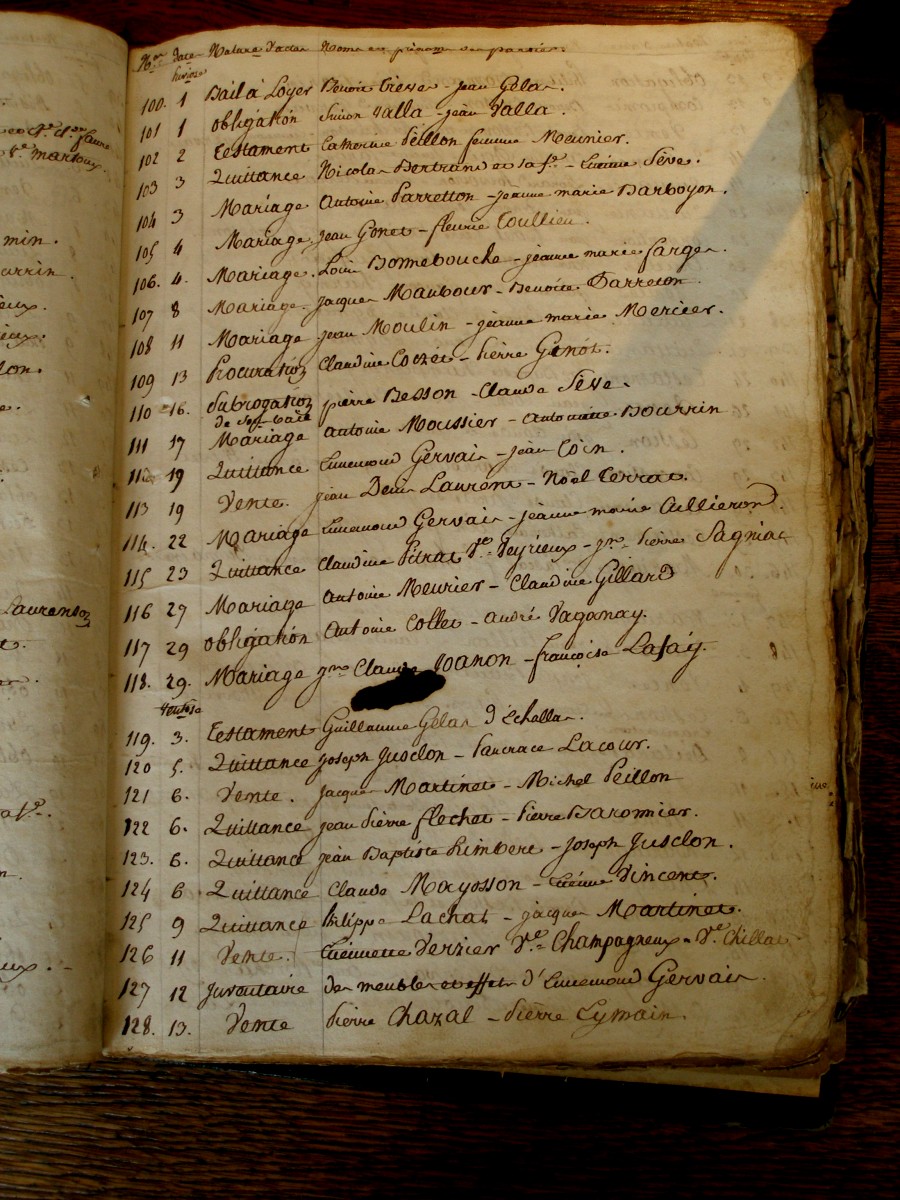 eo Cte. d.on faure
Ve. martoux
min.
urrin.
ieux.
ieux.
lon.
e.
Laurenson
t.
a Ve.
n.
ux.
Nos. Date Nature d'actes Noms et prénoms des parties.
nivose
100. 1 Bail à Loyer Benoit Trêves - jean Gelas.
101 1 obligation Simon Valla - jean Valla.
102 2 Testament Catherine Peillon femme Meunier.
103 3 Quittance Nicolas Bertrand et sa fe. - Etienne Sève.
104 3 Mariage Antoine Parretton - jeanne marie Barboyon.
105 4 Mariage jean Gonet - fleurie Coullieu.
106. 4. Mariage. Louis Bonnebouche - jeanne marie farges.
107 8 Mariage - jacques Maubour - Benoite Darreton.
108 11 Mariage jean Moulin - jeanne marie Mercier.
109 13 Procuration Claudine Cochet - Pierre Genot.
110 16. Subrogation de Sous-Bail pierre Besson - Claude Sève.
111 17 Mariage antoine Moussier - Antoinette Bourrin
112 19 Quittance Ennemond Gervais - jean Coin.
113 19 Vente. jean Denis Laurent - Noël Terrat.
114. 22 Mariage Ennemond Gervais - jeanne marie Aillierond.
115 23 Quittance Claudine Pitrat Ve. Peyrieux - jn. Pierre Sagniat
116 27 Mariage Antoine Meurier - Claudine Gillard
117 29 obligation Antoine Collet - andré Vaganay.
118. 29. Mariage jn. Claude Joanon - françoise Lafay.
Ventose
119. 3. Testament Guillaume Gelas d'Echallas.
120 5. Quittance joseph Jusclon - Pancrace Lacour.
121 6. Vente. jacques Martinet - Michel Peillon
122 6. Quittance jean Pierre flechet - Pierre Baromier.
123. 6. Quittance jean Baptiste Rimbert - joseph Jusclon.
124 6 Quittance Claude Mayosson - Etienne Vincent.
125 9 Quittance Philippe Lachat - jacques Martinet.
126 11 Vente. Etiennette Verzier Ve. Champagneux - Ve. Chillat
127 12 juventaire des meubles et effets d'Ennemond Gervais.
128. 13. Vente Pierre Chazal - Pierre Eymain.